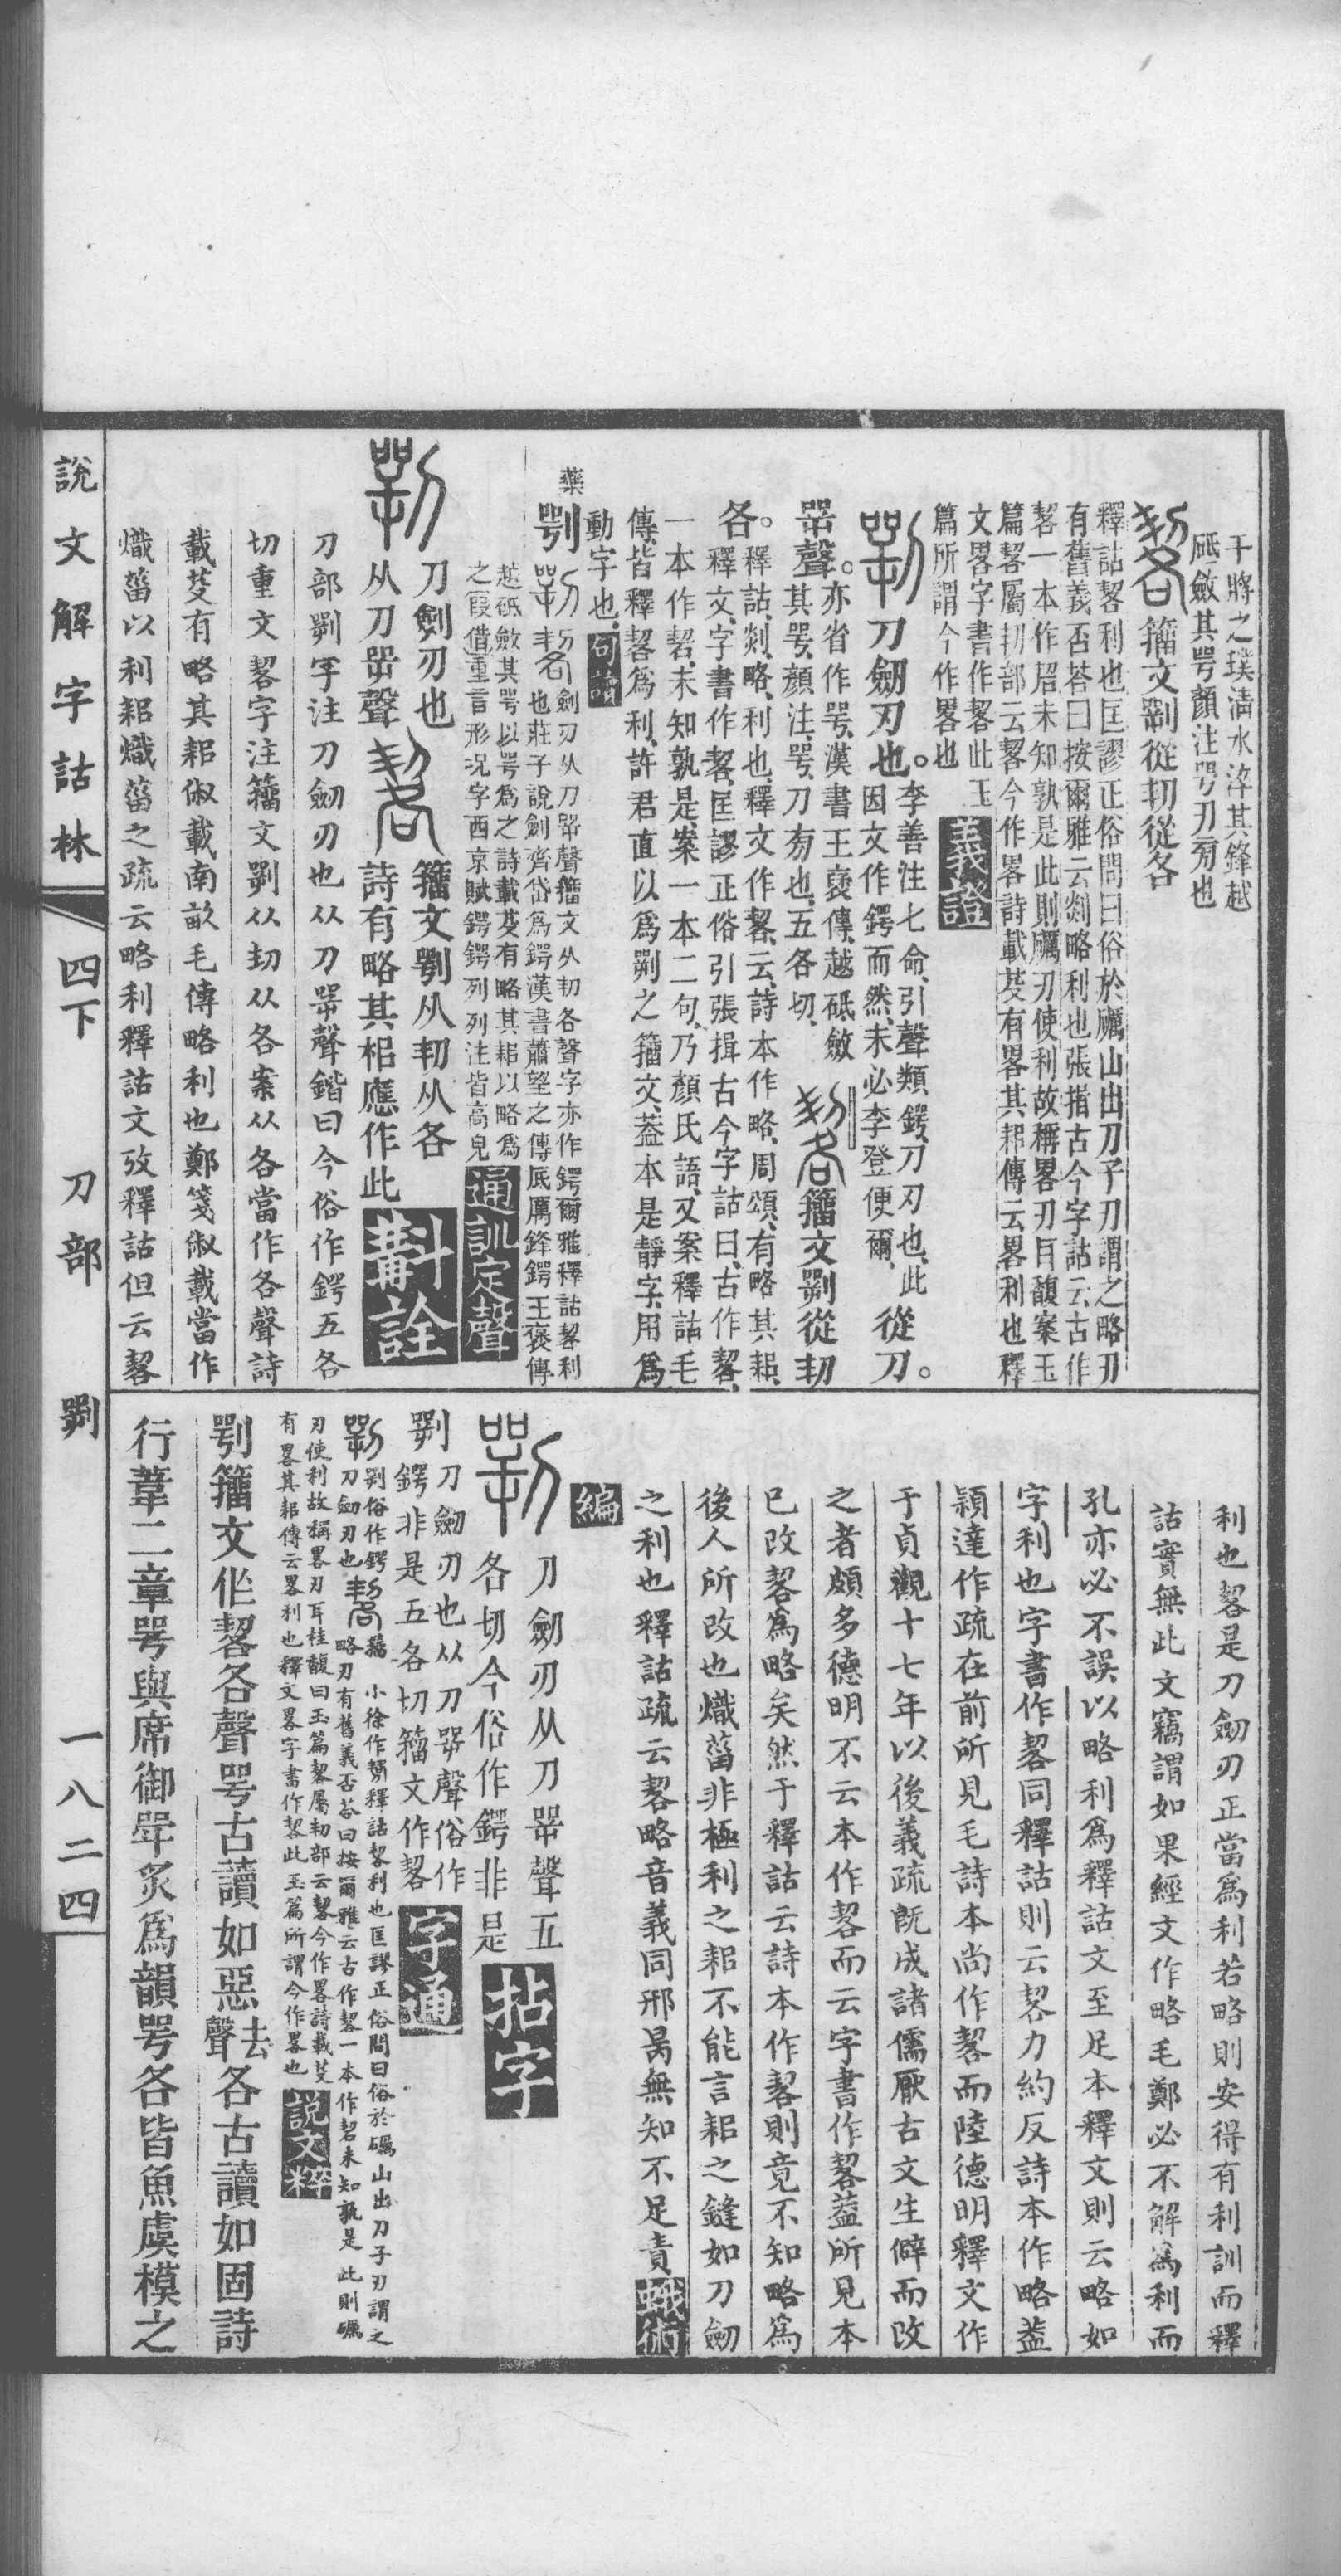 干將之璞淸水淬其鋒越
砥斂其咢顏注咢刃㫄也
籒文㓵從㓞從各
釋詁䂮利也匡謬正俗問曰俗於礪山出刀子刀謂之略刃
有舊義否荅曰按爾雅云剡略利也張揖古今字詁云古作
䂮一本作㓶未知孰是此則礪刃使利故稱畧刃目馥案玉
篇䂮屬㓞部云䂮今作畧詩載芟有畧其耜傳云畧利也釋
文畧字書作䂮此玉
篇所謂今作畧也
義證
刀劒刃也。李善注七命引聲類鍔刀刃也此
因文作鍔而然未必李登便爾
從刀。
㖾聲。亦省作咢漢書王襃傳越砥斂
其咢顏注咢刀㫄也五各切
籒文㓵從㓞
各。釋詁剡略利也釋文作䂮云詩本作略周頌有略其耜
釋文字書作䂮匡謬正俗引張揖古今字詁曰古作䂮
一本作㓶未知孰是案一本二句乃顏氏語又案釋詁毛
傳皆釋䂮爲利許君直以爲㓵之籒文葢本是靜字用爲
動字也
句讀
藥
㓵
劍刃从刀㖾聲籒文从㓞各聲字亦作鍔爾雅釋詁䂮利
也莊子說劍齊岱爲鍔漢書蕭望之傳底厲鋒鍔王襃傳
越砥斂其咢以咢爲之詩載芟有略其耜以略爲
之叚借重言形况字西京賦鍔鍔列列注皆高皃
通訓定聲
刀劍刃也
从刀㖾聲
籒文㓵从㓞从各
詩有略其耜應作此
斠詮
刀部㓵字注刀劒刃也从刀㖾聲鍇曰今俗作鍔五各
切重文䂮字注籒文㓵从㓞从各案从各當作各聲詩
載芟有略其耜俶載南畝毛傳略利也鄭箋俶載當作
熾菑以利耜熾菑之疏云略利釋詁文攷釋詁但云䂮
利也䂮是刀劒刃正當爲利若略則安得有利訓而釋
詁實無此文竊謂如果經文作略毛鄭必不解爲利而
孔亦必不誤以略利爲釋詁文至足本釋文則云略如
字利也字書作䂮同釋詁則云䂮力約反詩本作略葢
穎達作疏在前所見毛詩本尚作䂮而陸德明釋文作
于貞觀十七年以後義疏旣成諸儒厭古文生僻而改
之者頗多德明不云本作䂮而云字書作䂮葢所見本
已改䂮爲略矣然于釋詁云詩本作䂮則竟不知略爲
後人所改也熾菑非極利之耜不能言耜之鏠如刀劒
之利也釋詁疏云䂮略音義同邢昺無知不足責
蛾術
編
刀劒刃从刀㖾聲五
各切今俗作鍔非是
拈字
㓵
刀劒刃也从刀㖾聲俗作
鍔非是五各切籒文作䂮
字通
㓵俗作鍔
刀劒刃也
籒
小徐作剺釋詁䂮利也匡謬正俗問曰俗於礪山出刀子刃謂之
略刃有舊義否荅曰按爾雅云古作䂮一本作㓶未知孰是此則礪
刃使利故稱畧刃耳桂馥曰玉篇䂮屬㓞部云䂮今作畧詩載芟
有畧其耜傳云畧利也釋文畧字書作䂮此玉篇所謂今作畧也
說文粹
㓵籒文作䂮各聲咢古讀如惡去聲各古讀如固詩
行葦二章咢與席御斝炙爲韻咢各皆魚虞模之
說文解字詁林
四下
刀部
㓵
一八二四